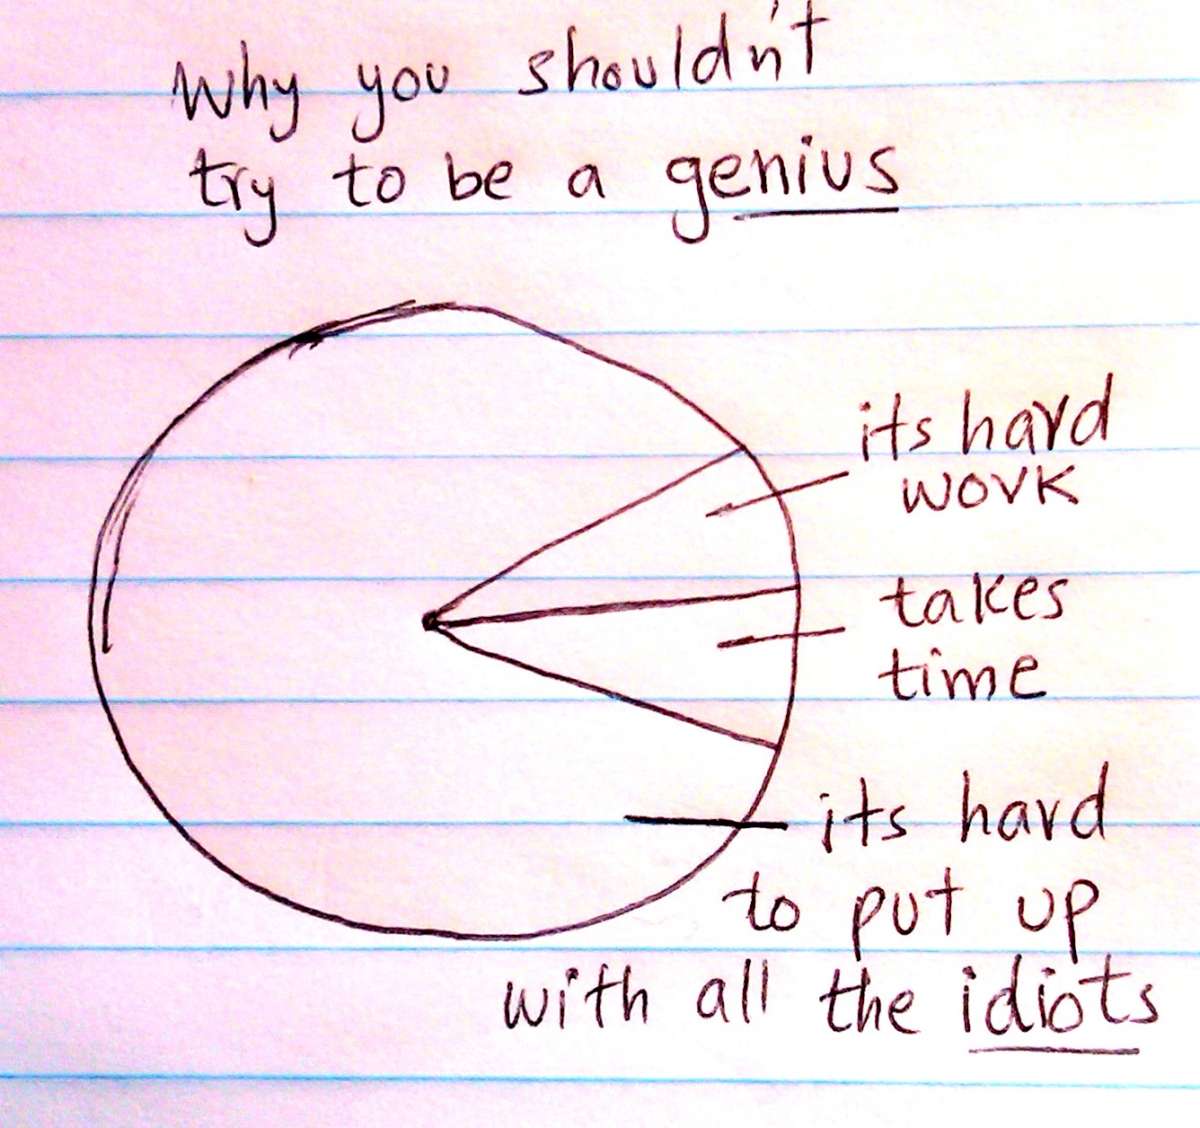 Why you shouldn't
try to be a genius
its hard
work
takes
time
its hard
to put up
with all the idiots